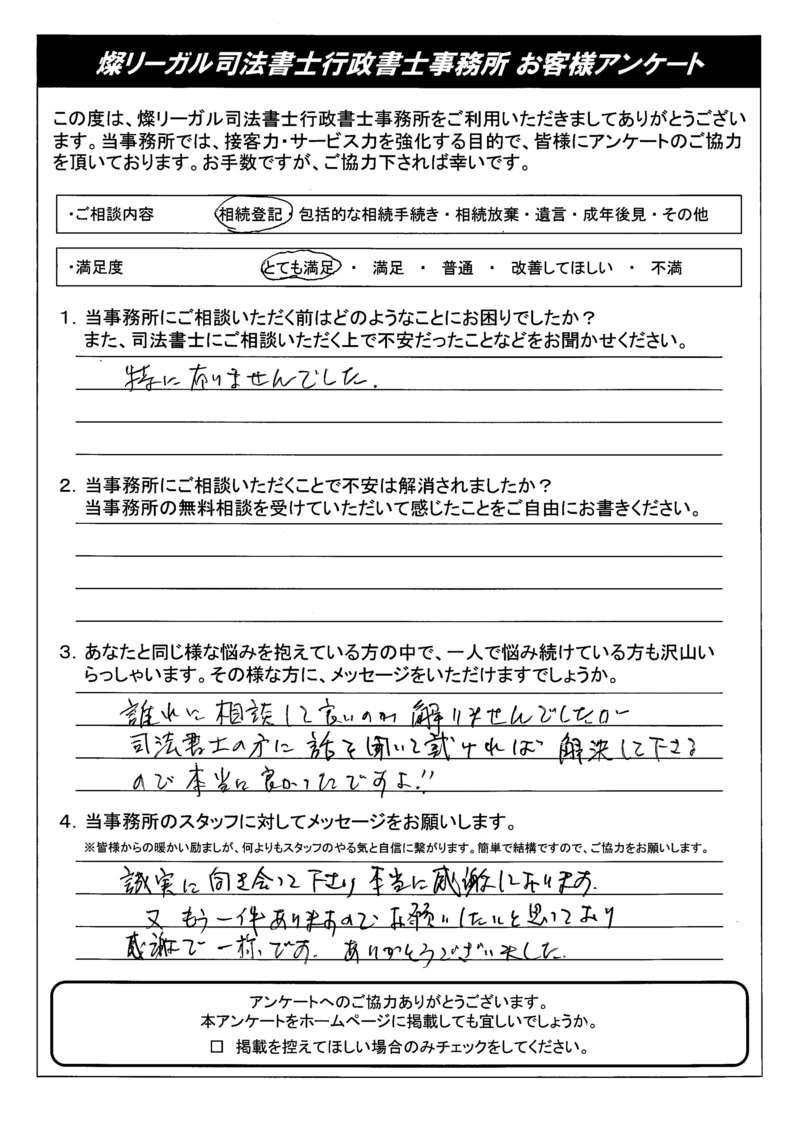 燦リーガル司法書士行政書士事務所 お客様アンケート
この度は、燦リーガル司法書士行政書士事務所をご利用いただきましてありがとうござい
ます。当事務所では、接客力・サービス力を強化する目的で、皆様にアンケートのご協力
を頂いております。お手数ですが、ご協力下されば幸いです。
・ご相談内容 相続登記・包括的な相続手続き・相続放棄・遺言・成年後見・その他
・満足度 とても満足 ・ 満足 ・ 普通 ・ 改善してほしい ・ 不満
1. 当事務所にご相談いただく前はどのようなことにお困りでしたか?
また、司法書士にご相談いただく上で不安だったことなどをお聞かせください。
特に有りませんでした.
2. 当事務所にご相談いただくことで不安は解消されましたか?
当事務所の無料相談を受けていただいて感じたことをご自由にお書きください。
3. あなたと同じ様な悩みを抱えている方の中で、一人で悩み続けている方も沢山い
らっしゃいます。その様な方に、メッセージをいただけますでしょうか。
誰れに相談して良いのか解りませんでしたが
司法書士の方に話を聞いて戴ければ解決して下さる
ので本当に良かったですよ!!
4. 当事務所のスタッフに対してメッセージをお願いします。
※皆様からの暖かい励ましが、何よりもスタッフのやる気と自信に繋がります。簡単で結構ですので、ご協力をお願いします。
誠実に向き合って下さり本当に感謝しております.
又もう一件ありますのでお願いしたいと思っており
感謝で一杯です. ありがとうございました.
アンケートへのご協力ありがとうございます。
本アンケートをホームページに掲載しても宜しいでしょうか。
□ 掲載を控えてほしい場合のみチェックをしてください。